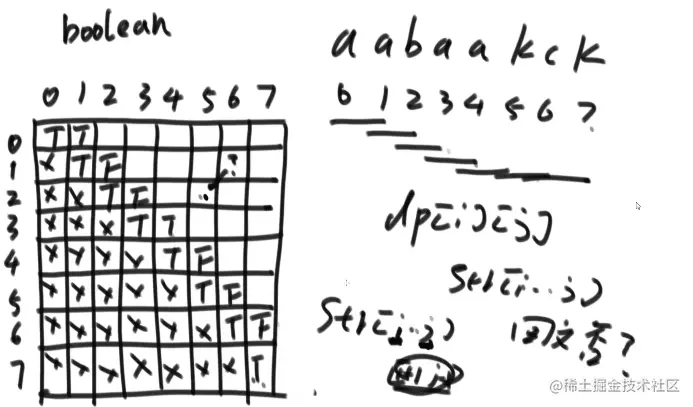 boolean
a a b a a k c k
0 1 2 3 4 5 6 7
0 1 2 3 4 5 6 7
0 T T
1 x T F ?
2 x x T F
3 x x x T T
4 x x x x T F
5 x x x x x T F
6 x x x x x x T F
7 x x x x x x x T
dp[i][j]
str[i..j]
str[i..j] 回文串?
@稀土掘金技术社区